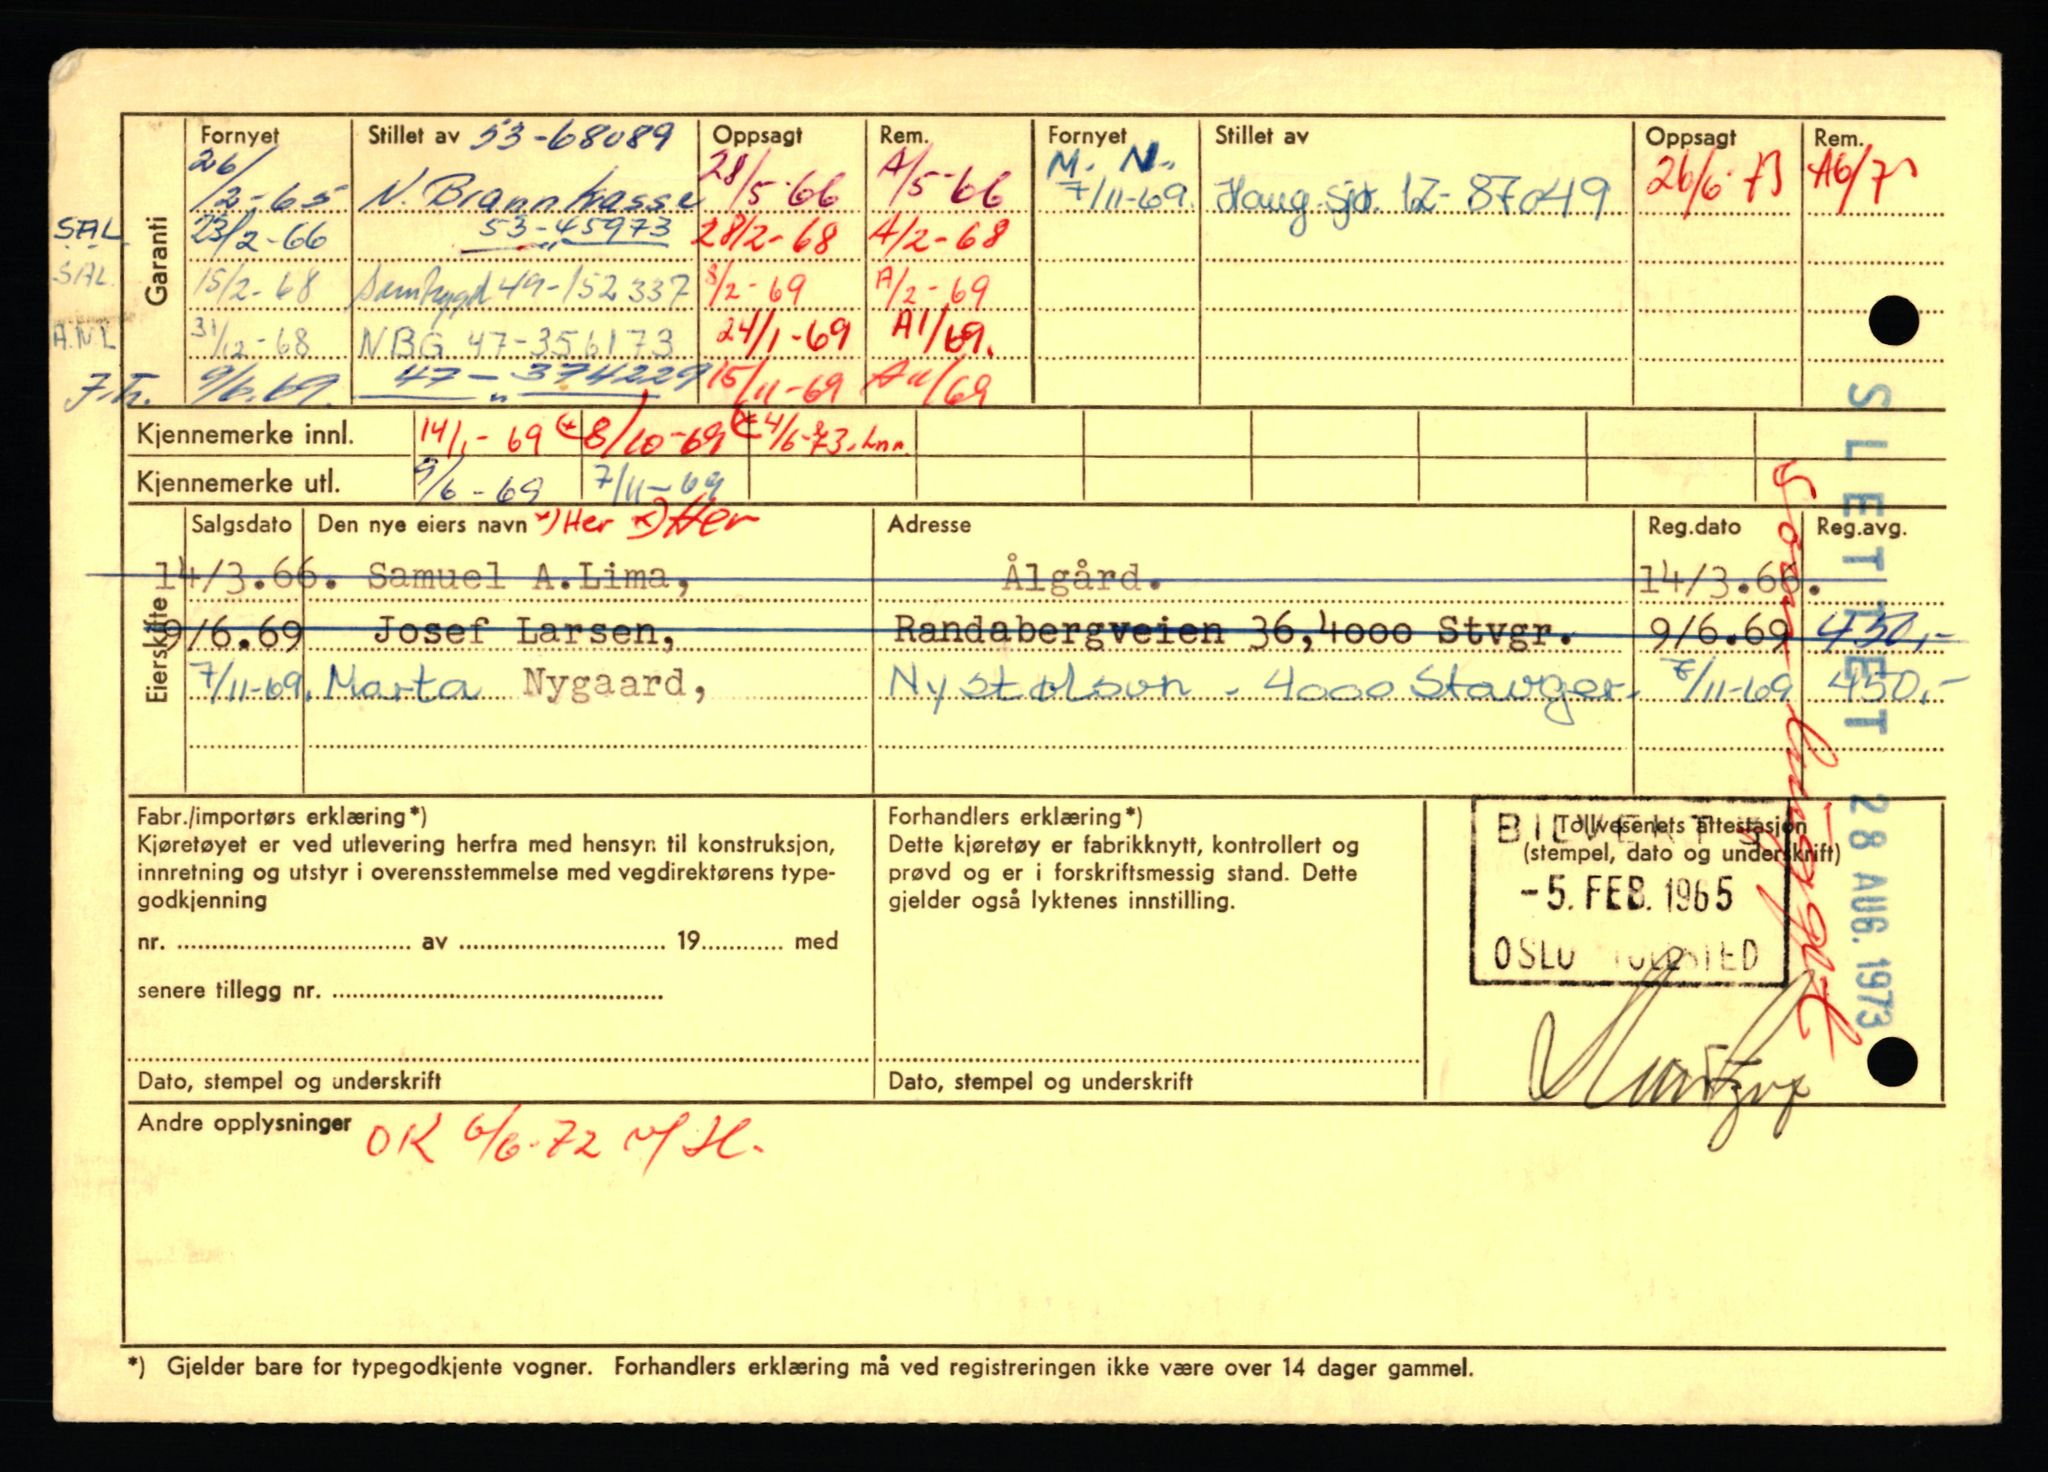 Garanti
Fornyet Stillet av 53-68089 Oppsagt Rem. Fornyet Stillet av Oppsagt Rem.
26/2-65 N. Brannkasse 28/5-66 A/5-66 M. N. 7/11-69. Haug. sjø. 12-87049 26/6-73 A6/73
SAL 23/2-66 53-45973 28/2-68 A/2-68
SAL. 15/2-68 Samtrygd 49-152337 8/2-69 A/2-69
A.N.L 31/12-68 NBG 47-356173 24/1-69 A1/69.
J.Th. 9/6.69. " 47-374229 15/11-69 A11/69
Kjennemerke innl. 14/1-69 8/10-69 4/6-73.
Kjennemerke utl. 9/6-69 7/11-69
Eierskifte
Salgsdato Den nye eiers navn *) Her *) Her Adresse Reg.dato Reg.avg.
14/3.66. Samuel A.Lima, Ålgård. 14/3.66.
9/6.69 Josef Larsen, Randabergveien 36,4000 Stvgr. 9/6.69 430,-
7/11-69. Marta Nygaard, Ny Stølsvn. 4000 Stavger. 7/11-69 450,-
SLETTET 28 AUG. 1973
Fabr./importørs erklæring*)
Kjøretøyet er ved utlevering herfra med hensyn til konstruksjon,
innretning og utstyr i overensstemmelse med vegdirektørens type-
godkjenning
nr. av 19 med
senere tillegg nr.
Dato, stempel og underskrift
Forhandlers erklæring*)
Dette kjøretøy er fabrikknytt, kontrollert og
prøvd og er i forskriftsmessig stand. Dette
gjelder også lyktenes innstilling.
Dato, stempel og underskrift
Tollvesenets attestasjon
(stempel, dato og underskrift)
-5. FEB. 1965
OSLO TOLLSTED
Andre opplysninger OK 6/6-72
*) Gjelder bare for typegodkjente vogner. Forhandlers erklæring må ved registreringen ikke være over 14 dager gammel.